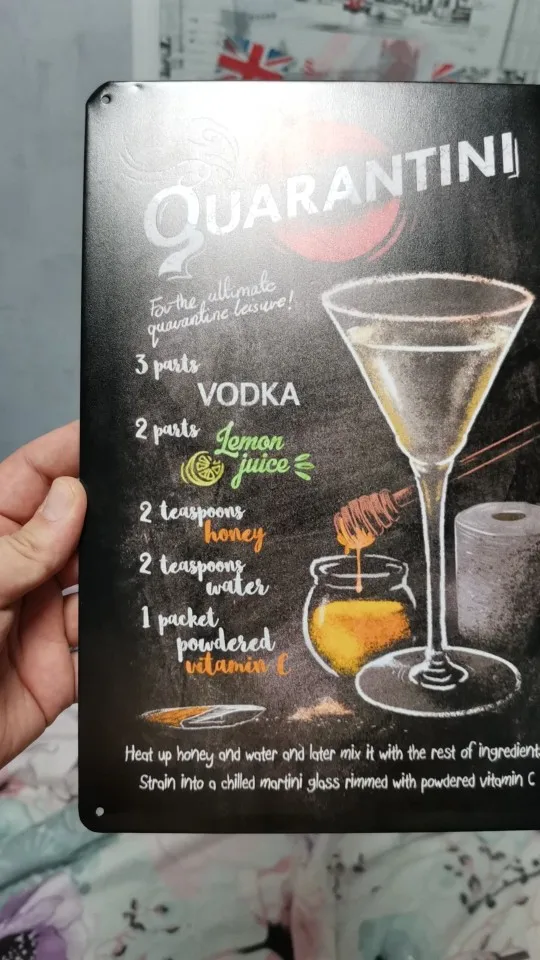 QUARANTINI
For the ultimate
quarantine leisure!
3 parts
VODKA
2 parts
Lemon
juice
2 teaspoons
honey
2 teaspoons
water
1 packet
powdered
vitamin C
Heat up honey and water and later mix it with the rest of ingredient
Strain into a chilled martini glass rimmed with powdered vitamin C